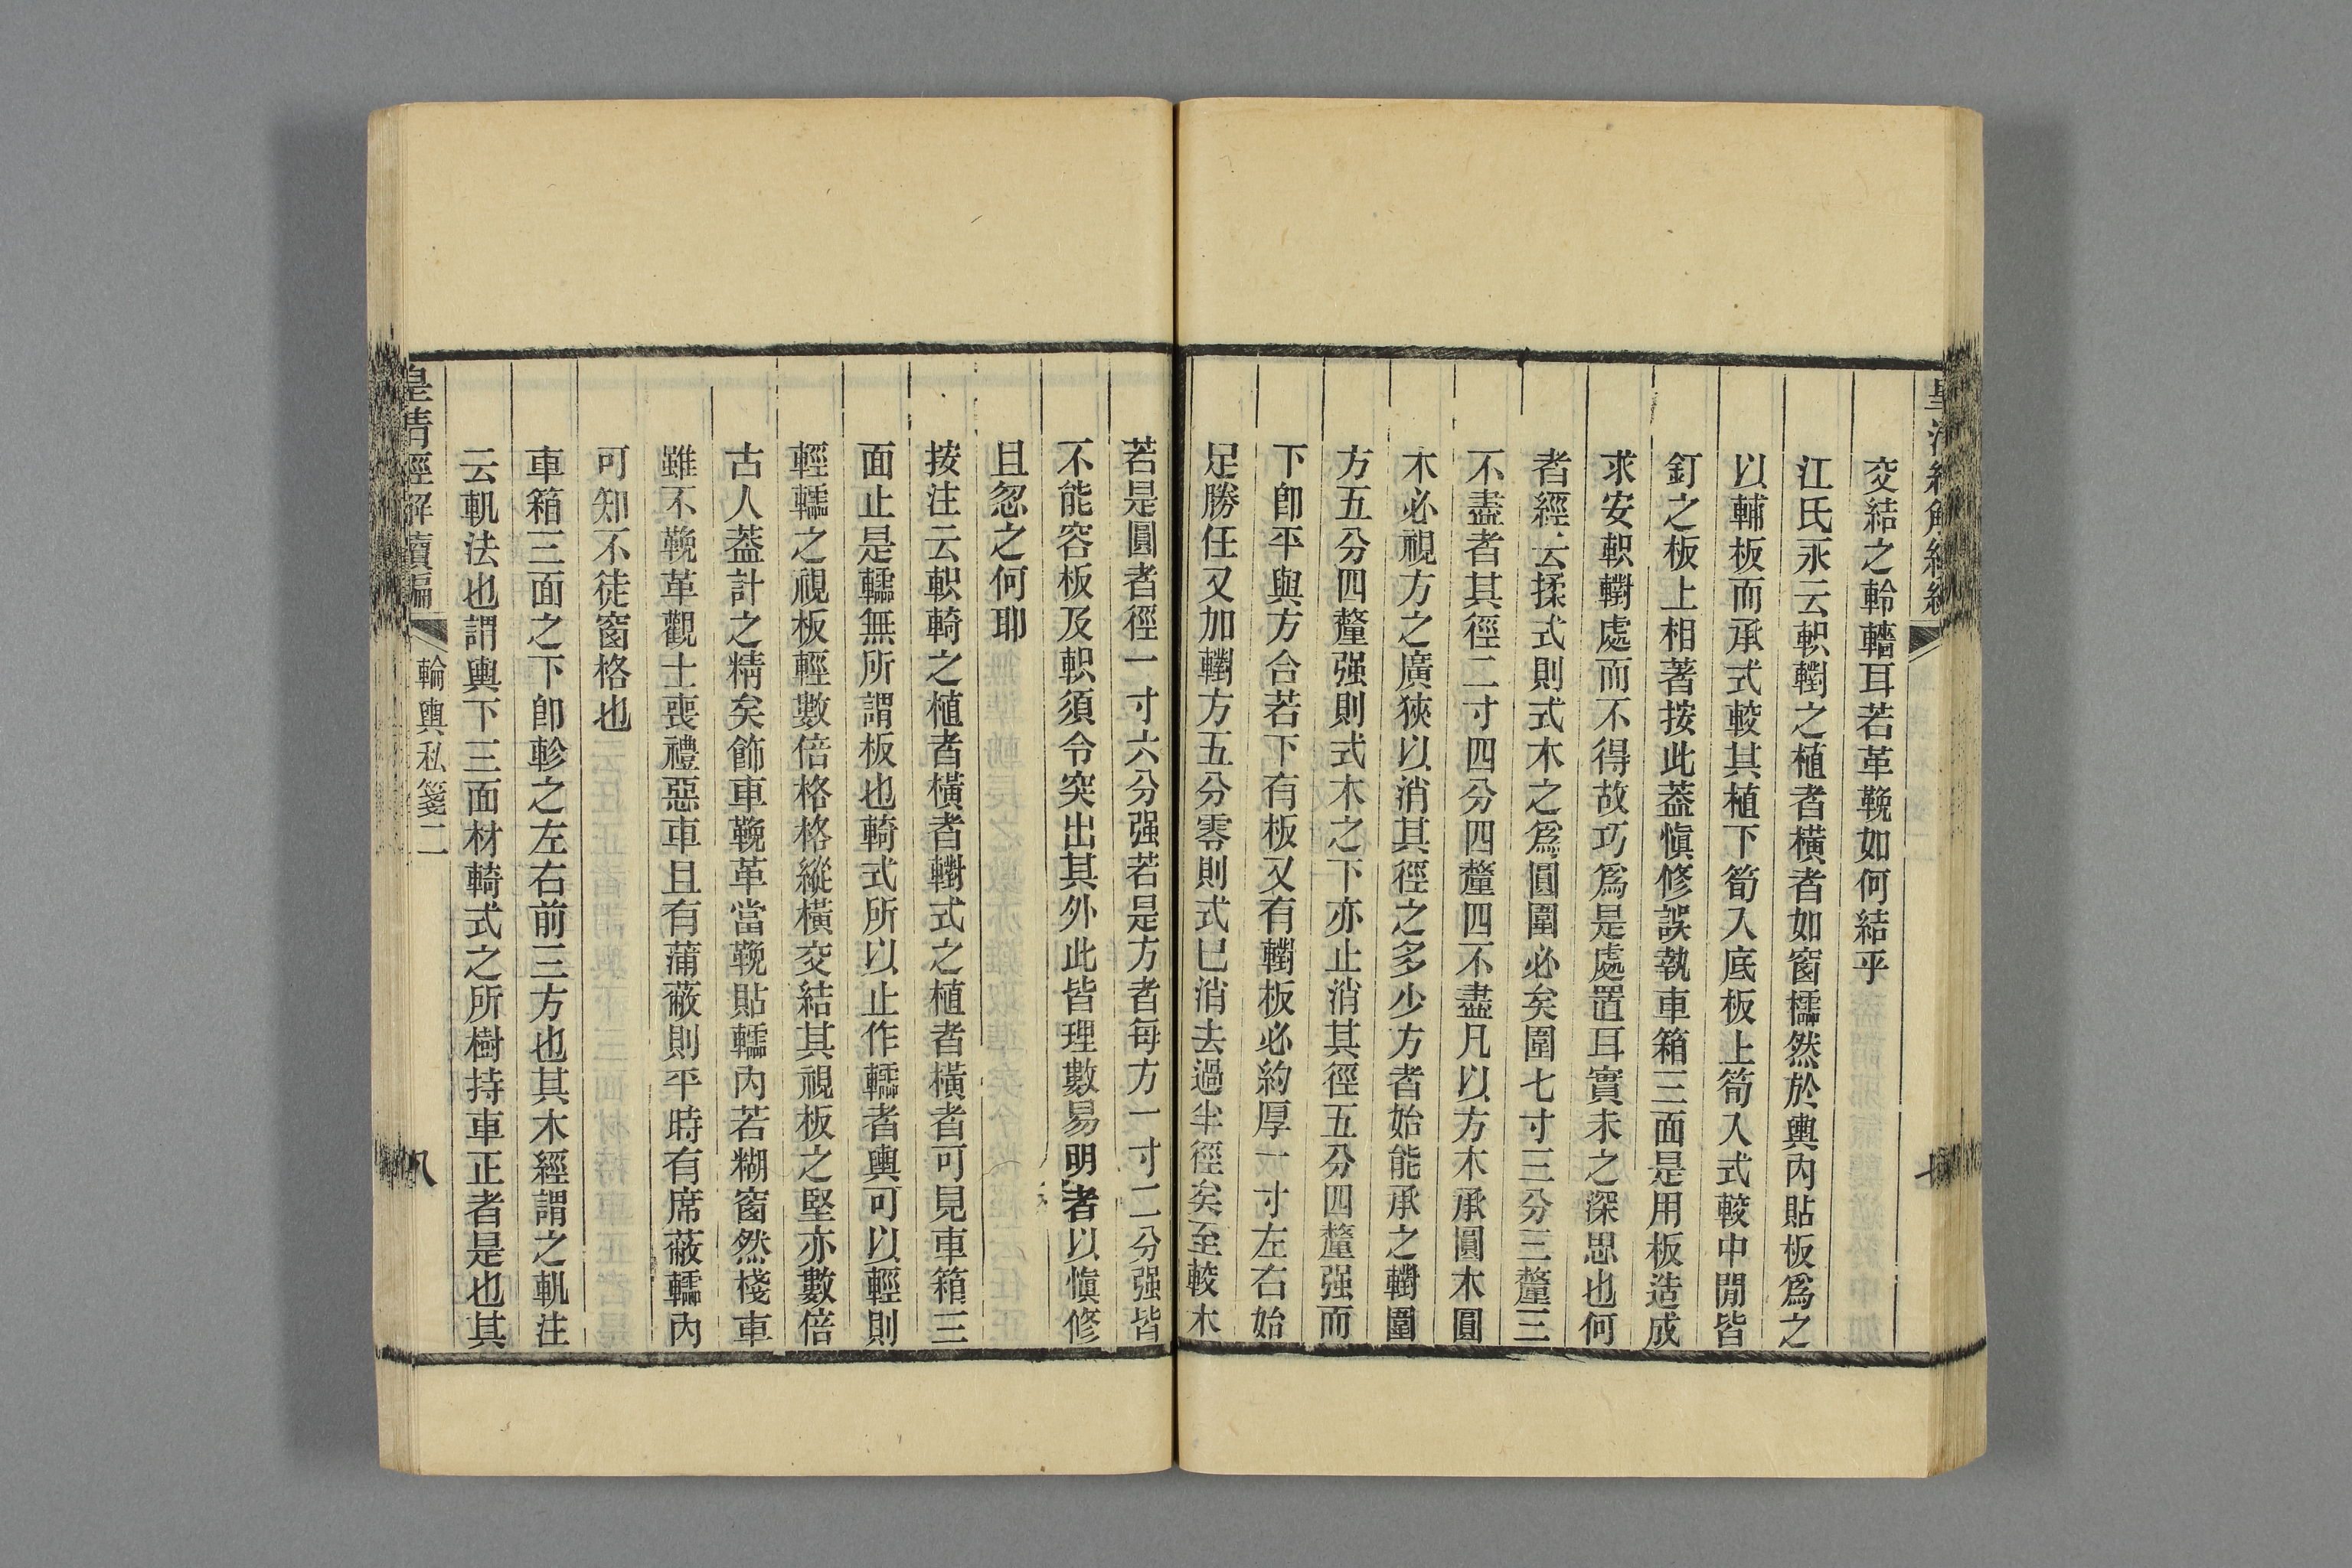 交結之軨轖耳若革鞔如何結乎
江氏永云軹轛之植者橫者如窗櫺然於輿內貼板爲之
以輔板而承式較其植下筍入底板上筍入式較中閒皆
釘之板上相著按此葢愼修誤執車箱三面是用板造成
求安軹轛處而不得故巧爲是處置耳實未之深思也何
者經云揉式則式木之爲圓圍必矣圍七寸三分三釐三
不盡者其徑二寸四分四釐四不盡凡以方木承圓木圓
木必視方之廣狹以消其徑之多少方者始能承之轛圍
方五分四釐强則式木之下亦止消其徑五分四釐强而
下卽平與方合若下有板又有轛板必約厚一寸左右始
足勝任又加轛方五分零則式巳消去過半徑矣至較木
若是圓者徑一寸六分强若是方者每方一寸二分强皆
不能容板及軹須令突出其外此皆理數易明者以愼修
且忽之何耶
按注云軹輢之植者橫者轛式之植者橫者可見車箱三
面止是轜無所謂板也輢式所以止作轜者輿可以輕則
輕轜之視板輕數倍格格縱橫交結其視板之堅亦數倍
古人葢計之精矣飾車鞔革當鞔貼轜內若糊窗然棧車
雖不鞔革觀士喪禮惡車且有蒲蔽則平時有席蔽轜內
可知不徒窗格也
車箱三面之下卽軫之左右前三方也其木經謂之軓注
云軓法也謂輿下三面材輢式之所樹持車正者是也其
皇清經解續編
輪輿私箋二
八